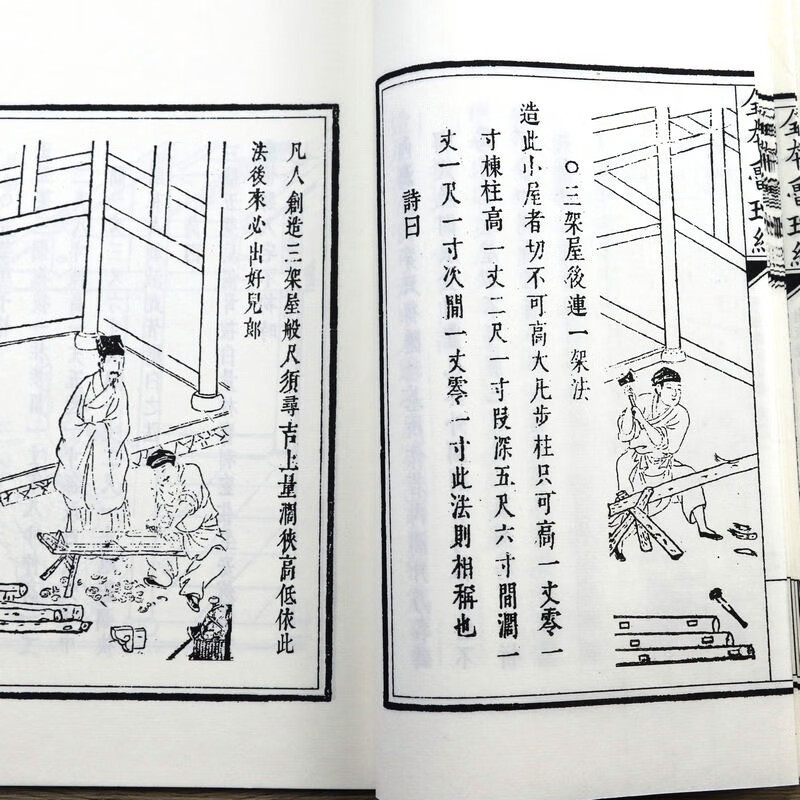 全本魯班經
○三架屋後連一架法
造此小屋者切不可高大凡步柱只可高一丈零一
寸棟柱高一丈二尺一寸段深五尺六寸間濶一
丈一尺一寸次間一丈零一寸此法則相稱也
詩曰
凡人創造三架屋般尺須尋吉上量濶狹高低依此
法後來必出好兒郎